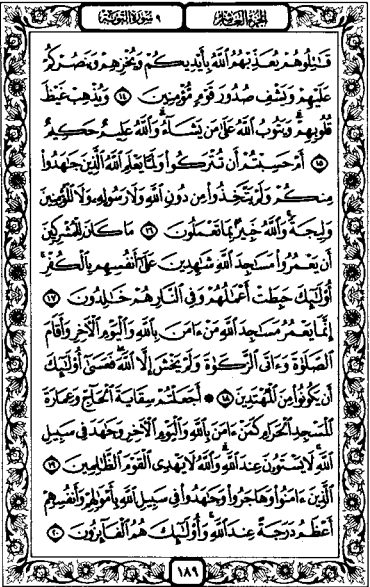 الجزء العاشر ٩ سورة التوبة
قَٰتِلُوهُمْ يُعَذِّبْهُمُ ٱللَّهُ بِأَيْدِيكُمْ وَيُخْزِهِمْ وَيَنصُرْكُمْ
عَلَيْهِمْ وَيَشْفِ صُدُورَ قَوْمٍ مُّؤْمِنِينَ ١٤ وَيُذْهِبْ غَيْظَ
قُلُوبِهِمْ وَيَتُوبُ ٱللَّهُ عَلَىٰ مَن يَشَآءُ وَٱللَّهُ عَلِيمٌ حَكِيمٌ
١٥ أَمْ حَسِبْتُمْ أَن تُتْرَكُوا۟ وَلَمَّا يَعْلَمِ ٱللَّهُ ٱلَّذِينَ جَٰهَدُوا۟
مِنكُمْ وَلَمْ يَتَّخِذُوا۟ مِن دُونِ ٱللَّهِ وَلَا رَسُولِهِۦ وَلَا ٱلْمُؤْمِنِينَ
وَلِيجَةً وَٱللَّهُ خَبِيرٌۢ بِمَا تَعْمَلُونَ ١٦ مَا كَانَ لِلْمُشْرِكِينَ
أَن يَعْمُرُوا۟ مَسَٰجِدَ ٱللَّهِ شَٰهِدِينَ عَلَىٰٓ أَنفُسِهِم بِٱلْكُفْرِ
أُو۟لَٰٓئِكَ حَبِطَتْ أَعْمَٰلُهُمْ وَفِى ٱلنَّارِ هُمْ خَٰلِدُونَ ١٧
إِنَّمَا يَعْمُرُ مَسَٰجِدَ ٱللَّهِ مَنْ ءَامَنَ بِٱللَّهِ وَٱلْيَوْمِ ٱلْءَاخِرِ وَأَقَامَ
ٱلصَّلَوٰةَ وَءَاتَى ٱلزَّكَوٰةَ وَلَمْ يَخْشَ إِلَّا ٱللَّهَ فَعَسَىٰٓ أُو۟لَٰٓئِكَ
أَن يَكُونُوا۟ مِنَ ٱلْمُهْتَدِينَ ١٨ ۞ أَجَعَلْتُمْ سِقَايَةَ ٱلْحَآجِّ وَعِمَارَةَ
ٱلْمَسْجِدِ ٱلْحَرَامِ كَمَنْ ءَامَنَ بِٱللَّهِ وَٱلْيَوْمِ ٱلْءَاخِرِ وَجَٰهَدَ فِى سَبِيلِ
ٱللَّهِ لَا يَسْتَوُۥنَ عِندَ ٱللَّهِ وَٱللَّهُ لَا يَهْدِى ٱلْقَوْمَ ٱلظَّٰلِمِينَ ١٩
ٱلَّذِينَ ءَامَنُوا۟ وَهَاجَرُوا۟ وَجَٰهَدُوا۟ فِى سَبِيلِ ٱللَّهِ بِأَمْوَٰلِهِمْ وَأَنفُسِهِمْ
أَعْظَمُ دَرَجَةً عِندَ ٱللَّهِ وَأُو۟لَٰٓئِكَ هُمُ ٱلْفَآئِزُونَ ٢٠
١٨٩